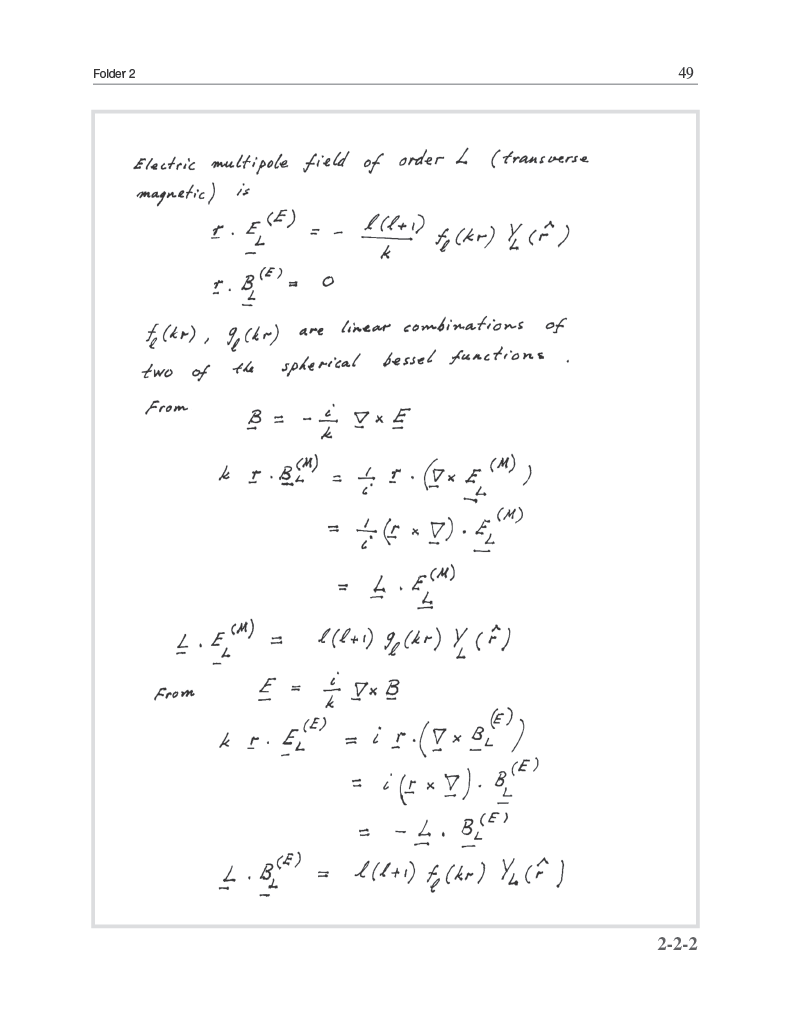 Folder 2 49
Electric multipole field of order L (transverse
magnetic) is
r · E_L^(E) = - l(l+1)/k f_l(kr) Y_L(r̂)
r · B_L^(E) = 0
f_l(kr), g_l(kr) are linear combinations of
two of the spherical bessel functions.
From B = - i/k ∇ × E
k r · B_L^(M) = 1/i r · (∇ × E_L^(M))
= 1/i (r × ∇) · E_L^(M)
= L · E_L^(M)
L · E_L^(M) = l(l+1) g_l(kr) Y_L(r̂)
From E = i/k ∇ × B
k r · E_L^(E) = i r · (∇ × B_L^(E))
= i (r × ∇) · B_L^(E)
= - L · B_L^(E)
L · B_L^(E) = l(l+1) f_l(kr) Y_L(r̂)
2-2-2